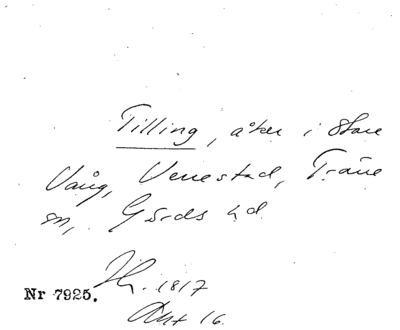 Tilling, åker i Store
Vång, Venestad, Träne
sn, Gärds hd
1817
Nr 7925.
Akt 16.